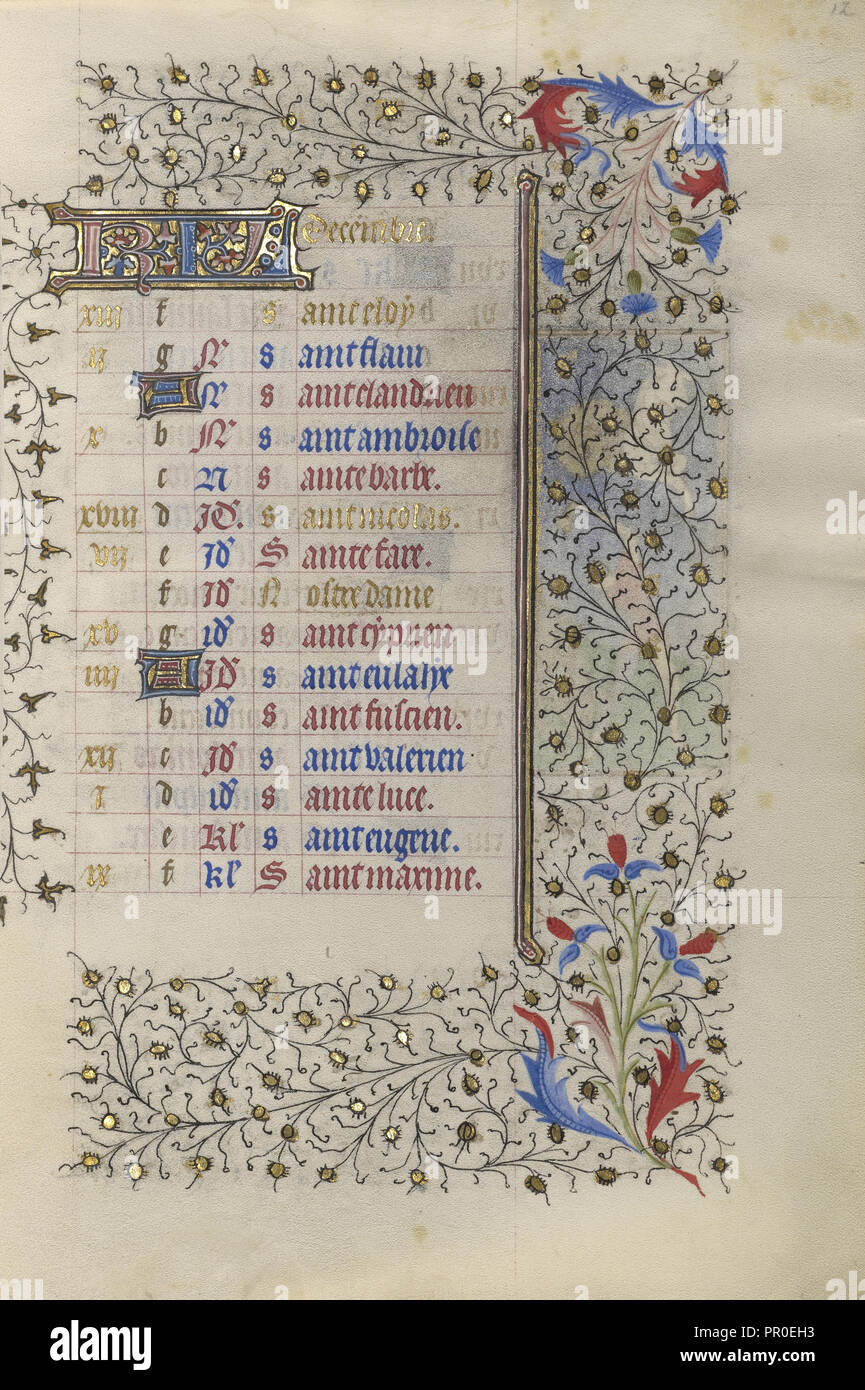 12
KL Decembre.
xiii f s aint eloy
ii g N s aint flavi
A N s aint clandrien
x b N s aint ambroise
c N s ainte barbe.
xviii d ID. s aint nicolas.
vii e ID S ainte fare.
f ID N ostre dame
xv g ID s aint cyprien
iiii A ID s aint eulalye
b ID s aint fuscien.
xii c ID s aint valerien
i d ID s ainte luce.
e KL s aint eugene.
ix f KL S aint maxime.
alamy
alamy
a
Image ID: PR0EH3
www.alamy.com